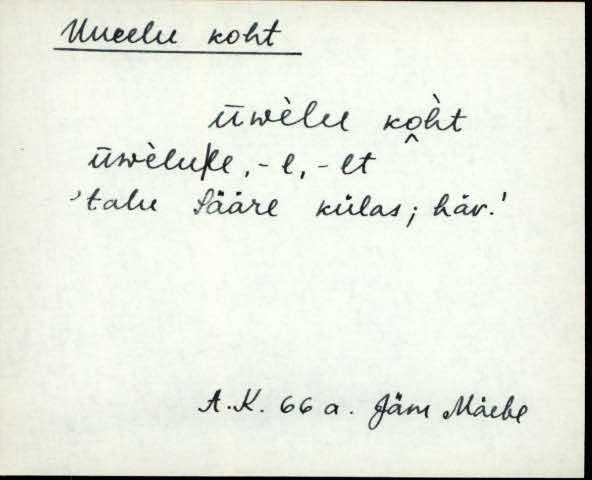 Uueelu koht
ūwèlu ko̭h̀t
ūwèlu|le, -l, -lt
'talu Sääre külas; häv.'
A.K. 66 a. Jäm Mäebe